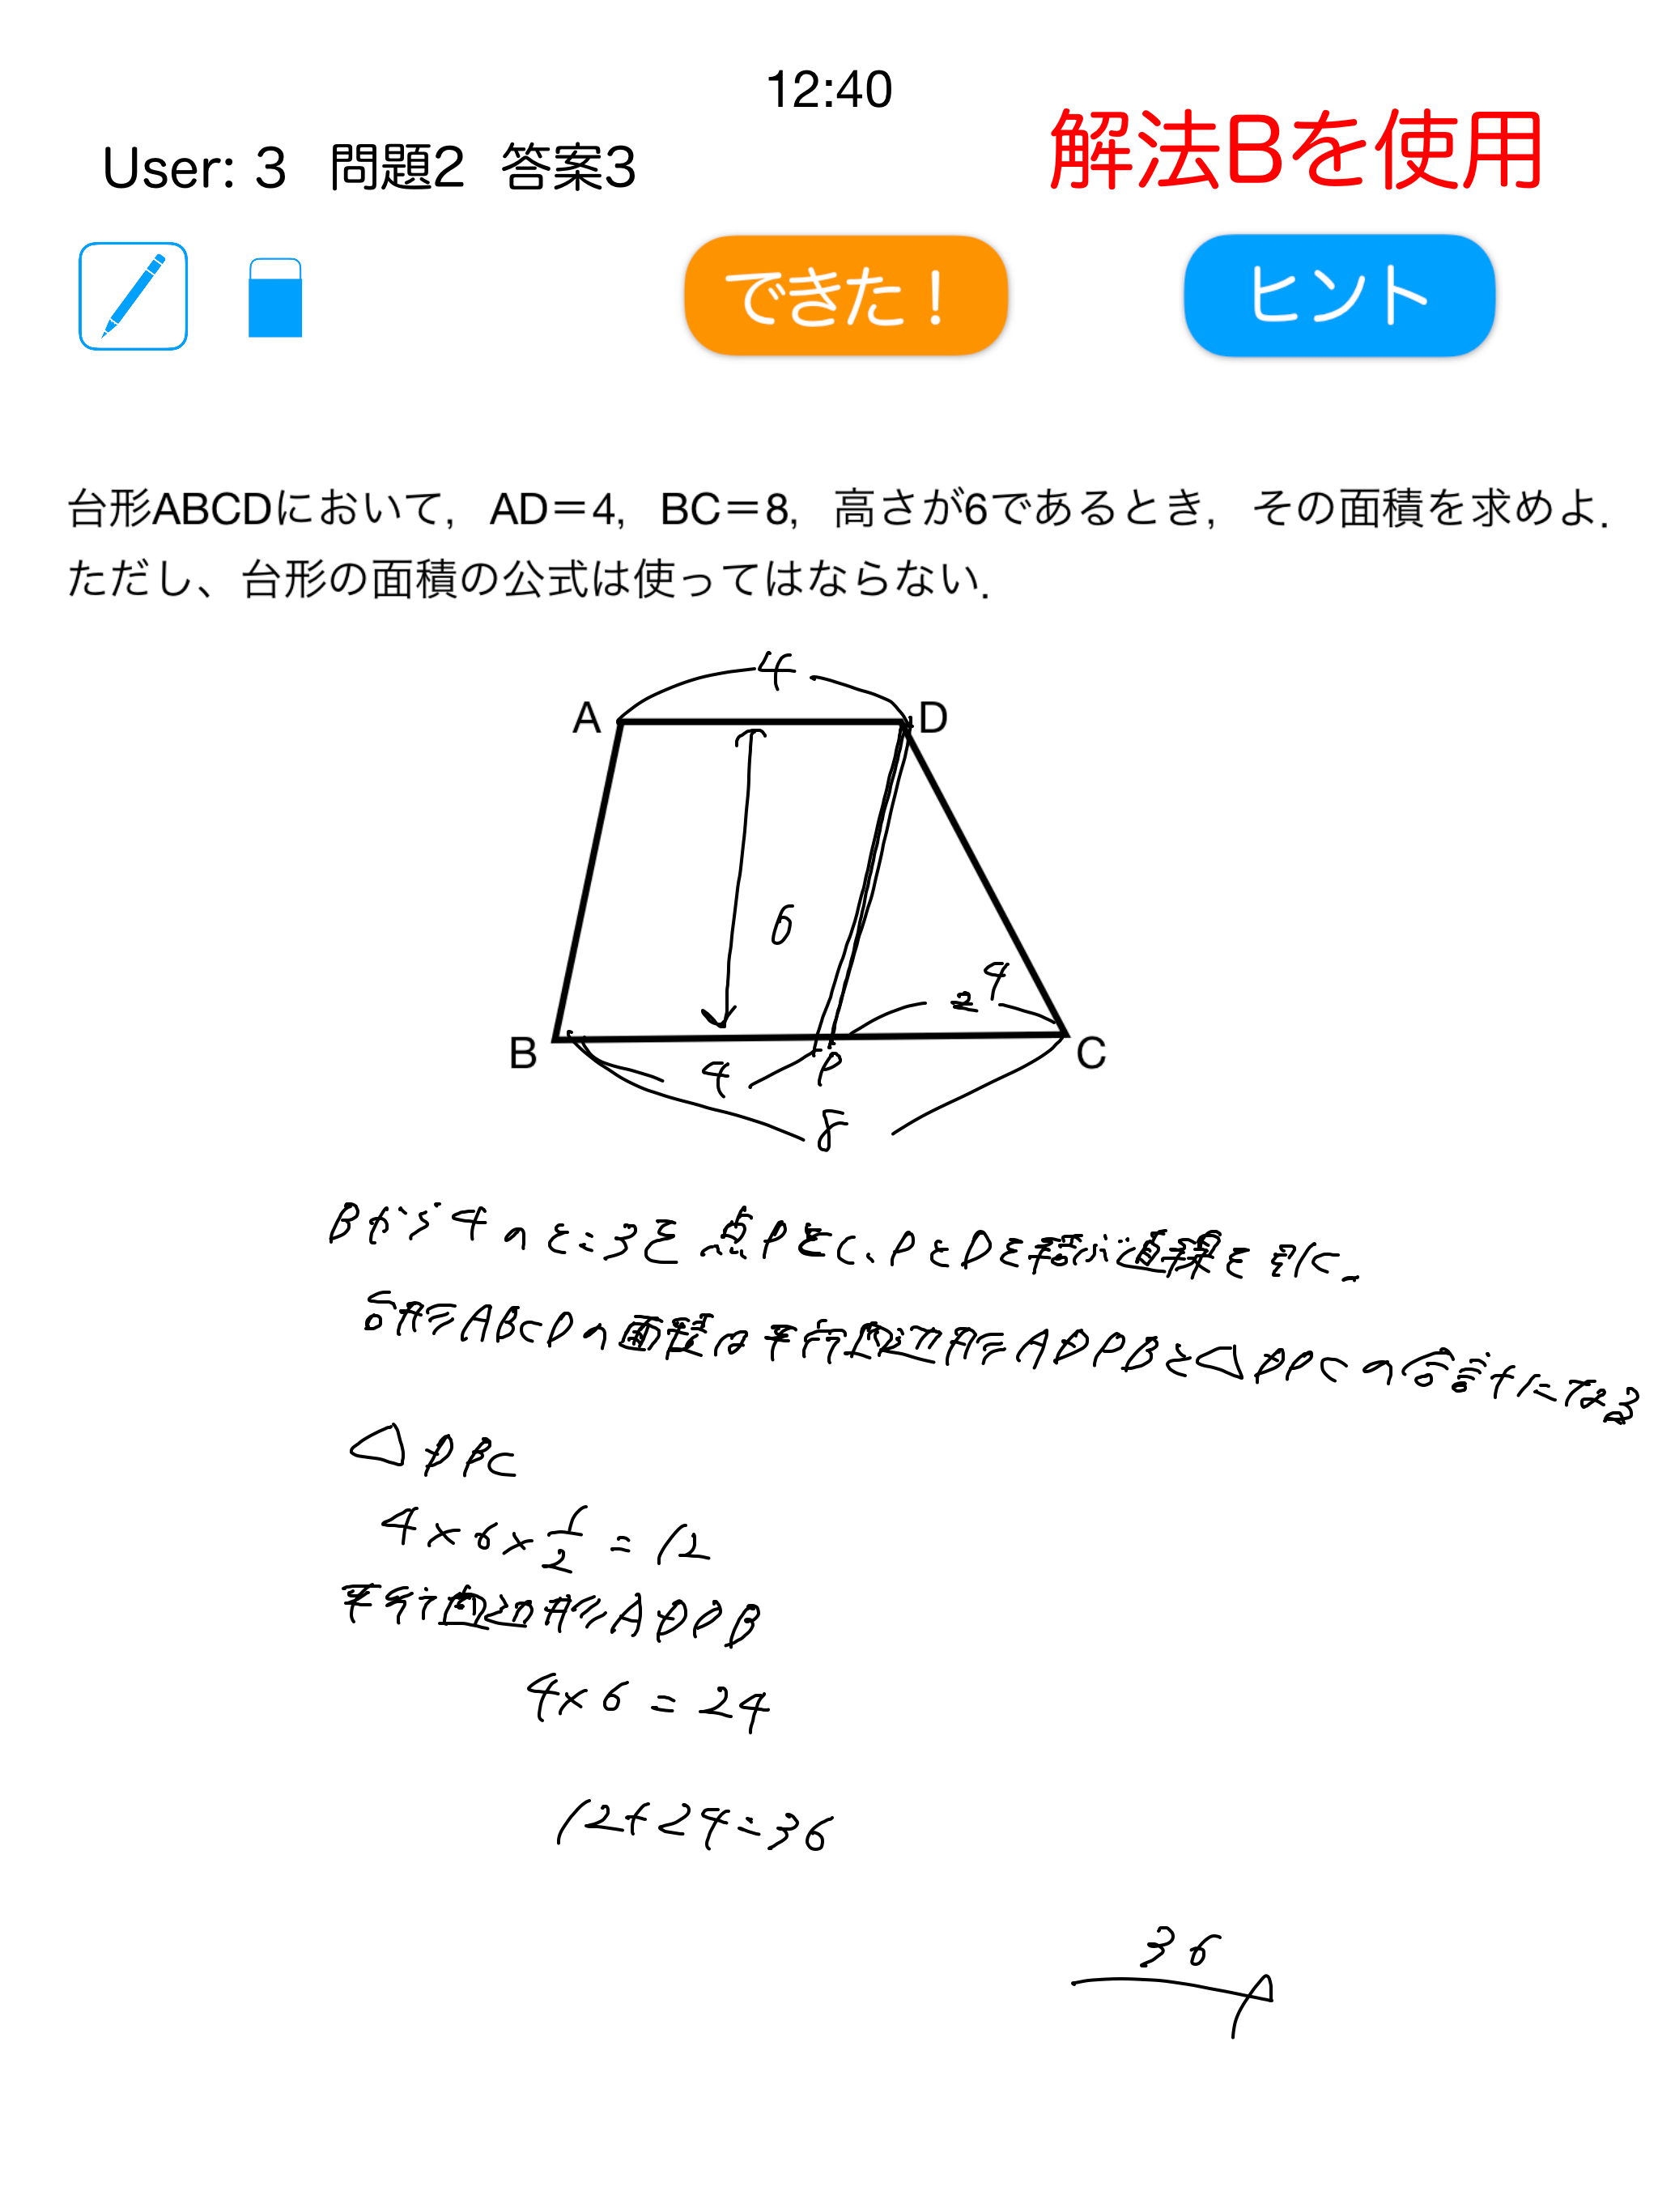 12:40
User: 3 問題2 答案3
解法Bを使用
できた！
ヒント
台形ABCDにおいて，AD＝4，BC＝8，高さが6であるとき，その面積を求めよ．
ただし、台形の面積の公式は使ってはならない．
4
A
D
6
4
B
4
P
C
8
Bから4のところを点Pとし、PとDを結ぶ直線を引く。
台形ABCDの面積は平行四辺形ADPBと△DPCの合計になる
△DPC
4×6×1/2=12
平行四辺形ADPB
4×6=24
12+24=36
36